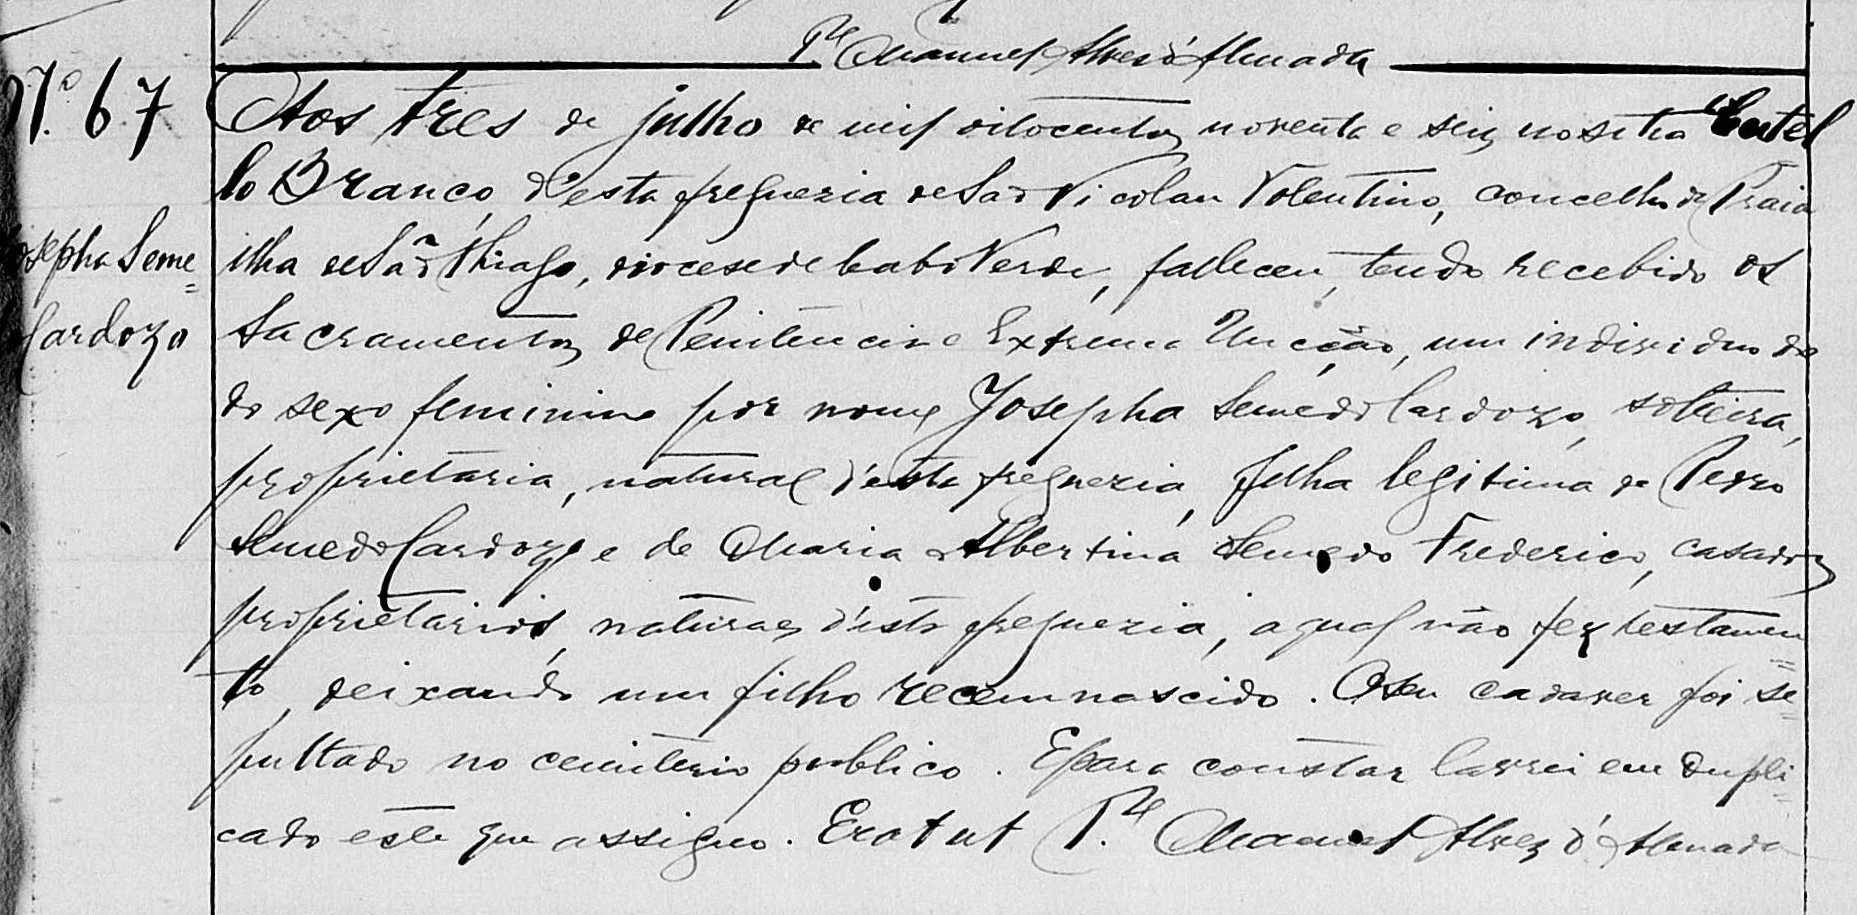 Pe Manuel Alves d'Almada
N.º 67
Josepha Seme=
Cardozo
Aos tres de julho de mil oitocentos noventa e seis no sitio Castel
lo Branco, d'esta freguezia de São Nicolau Tolentino, concelho da Praia
ilha de São Thiago, diocese de Cabo Verde, falleceu, tendo recebido os
Sacramentos de Penitencia e Extrema Uncção, um individuo do
do sexo feminino por nome Josepha Semedo Cardozo, solteira,
proprietaria, natural d'esta freguezia, filha legitima de Pedro
Semedo Cardozo e de Maria Albertina Semedo Frederico, casados
proprietarios, naturaes d'esta freguezia, a qual não fez testamen=
to, deixando um filho recemnascido. O seu cadaver foi se=
pultado no cemiterio publico. E para constar lavrei em dupli=
cado este que assigno. Era ut Pe Manuel Alves d'Almada